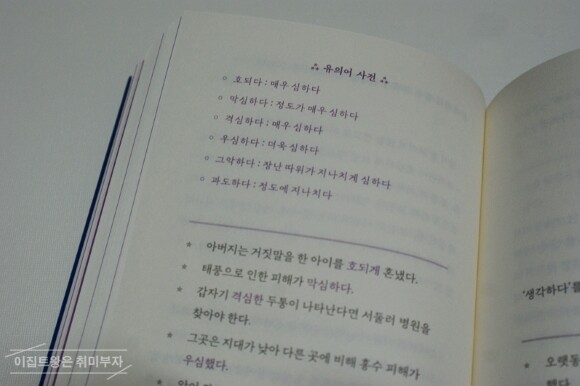 ∴ 유의어 사전 ∴
○ 호되다 : 매우 심하다
○ 막심하다 : 정도가 매우 심하다
○ 격심하다 : 매우 심하다
○ 우심하다 : 더욱 심하다
○ 그악하다 : 장난 따위가 지나치게 심하다
○ 과도하다 : 정도에 지나치다
* 아버지는 거짓말을 한 아이를 호되게 혼냈다.
* 태풍으로 인한 피해가 막심하다.
* 갑자기 격심한 두통이 나타난다면 서둘러 병원을
찾아야 한다.
* 그곳은 지대가 낮아 다른 곳에 비해 홍수 피해가
우심했다.
'생각하다'를
* 오랫동
했다.
이집트왕은 취미부자